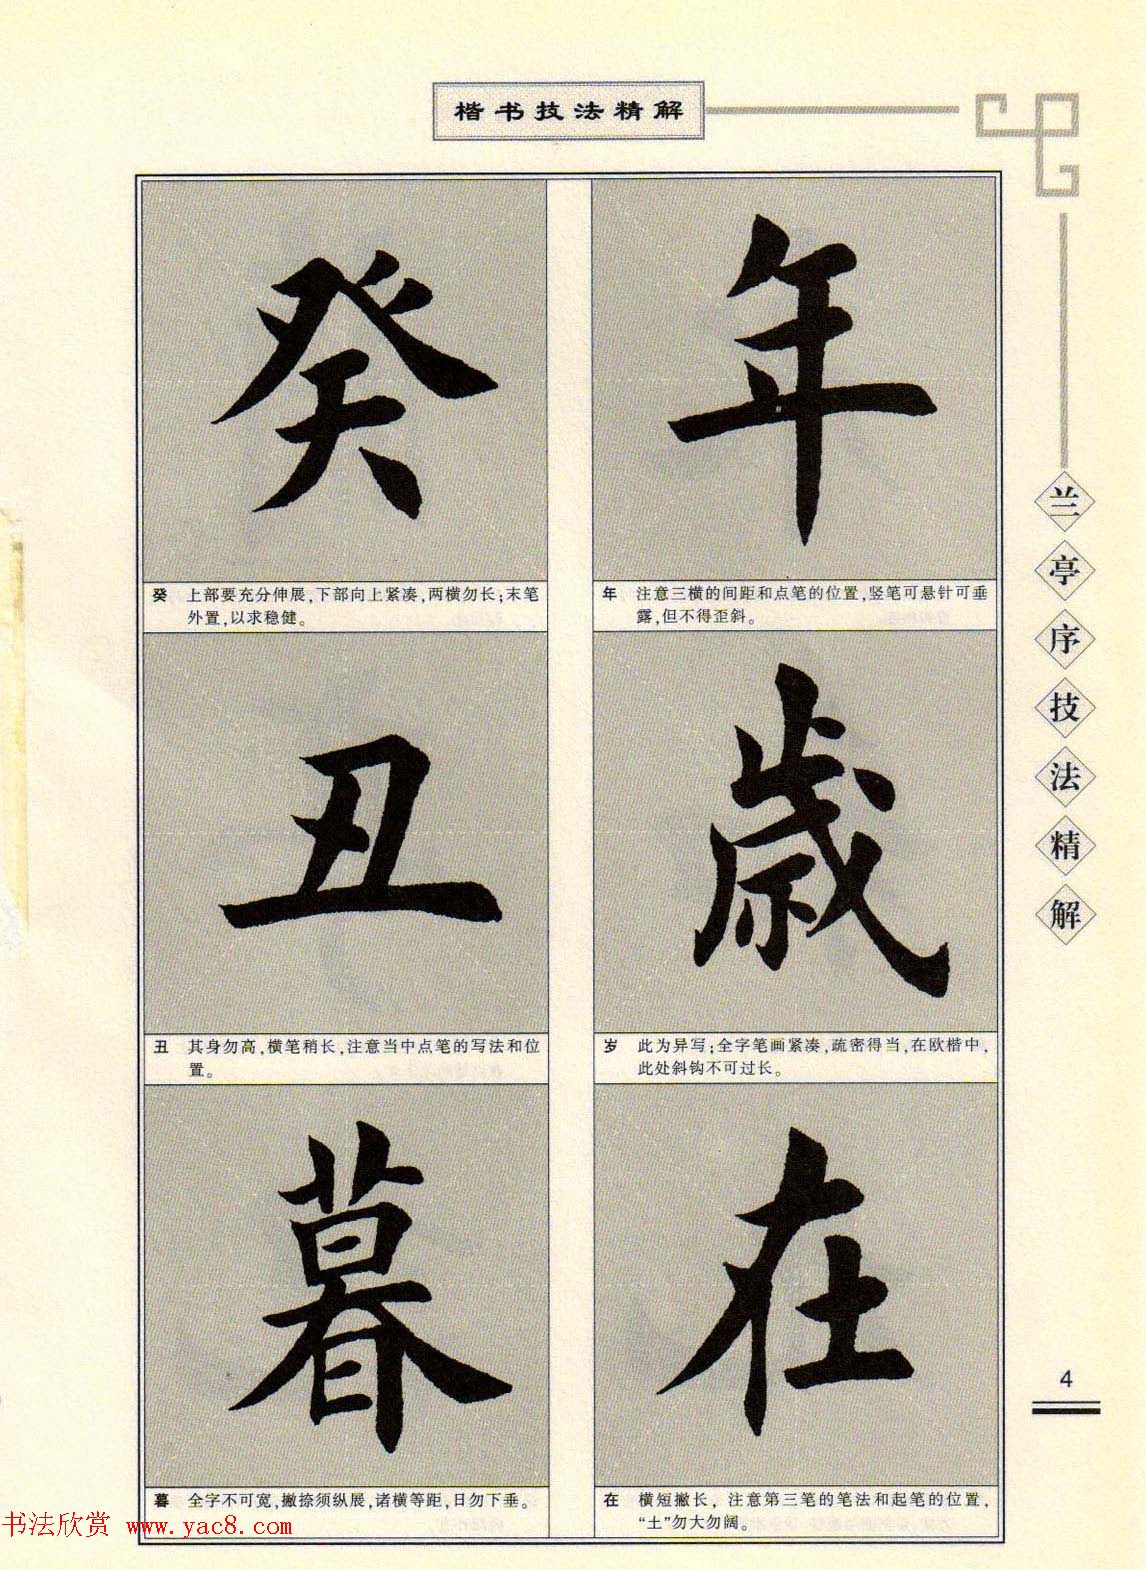 楷书技法精解
癸
年
癸 上部要充分伸展,下部向上紧凑,两横勿长;末笔
外置,以求稳健。
年 注意三横的间距和点笔的位置,竖笔可悬针可垂
露,但不得歪斜。
丑
歳
丑 其身勿高,横笔稍长,注意当中点笔的写法和位
置。
岁 此为异写;全字笔画紧凑,疏密得当,在欧楷中,
此处斜钩不可过长。
暮
在
暮 全字不可宽,撇捺须纵展,诸横等距,日勿下垂。
在 横短撇长，注意第三笔的笔法和起笔的位置，
“土”勿大勿阔。
兰亭序技法精解
4
书法欣赏 www.yac8.com